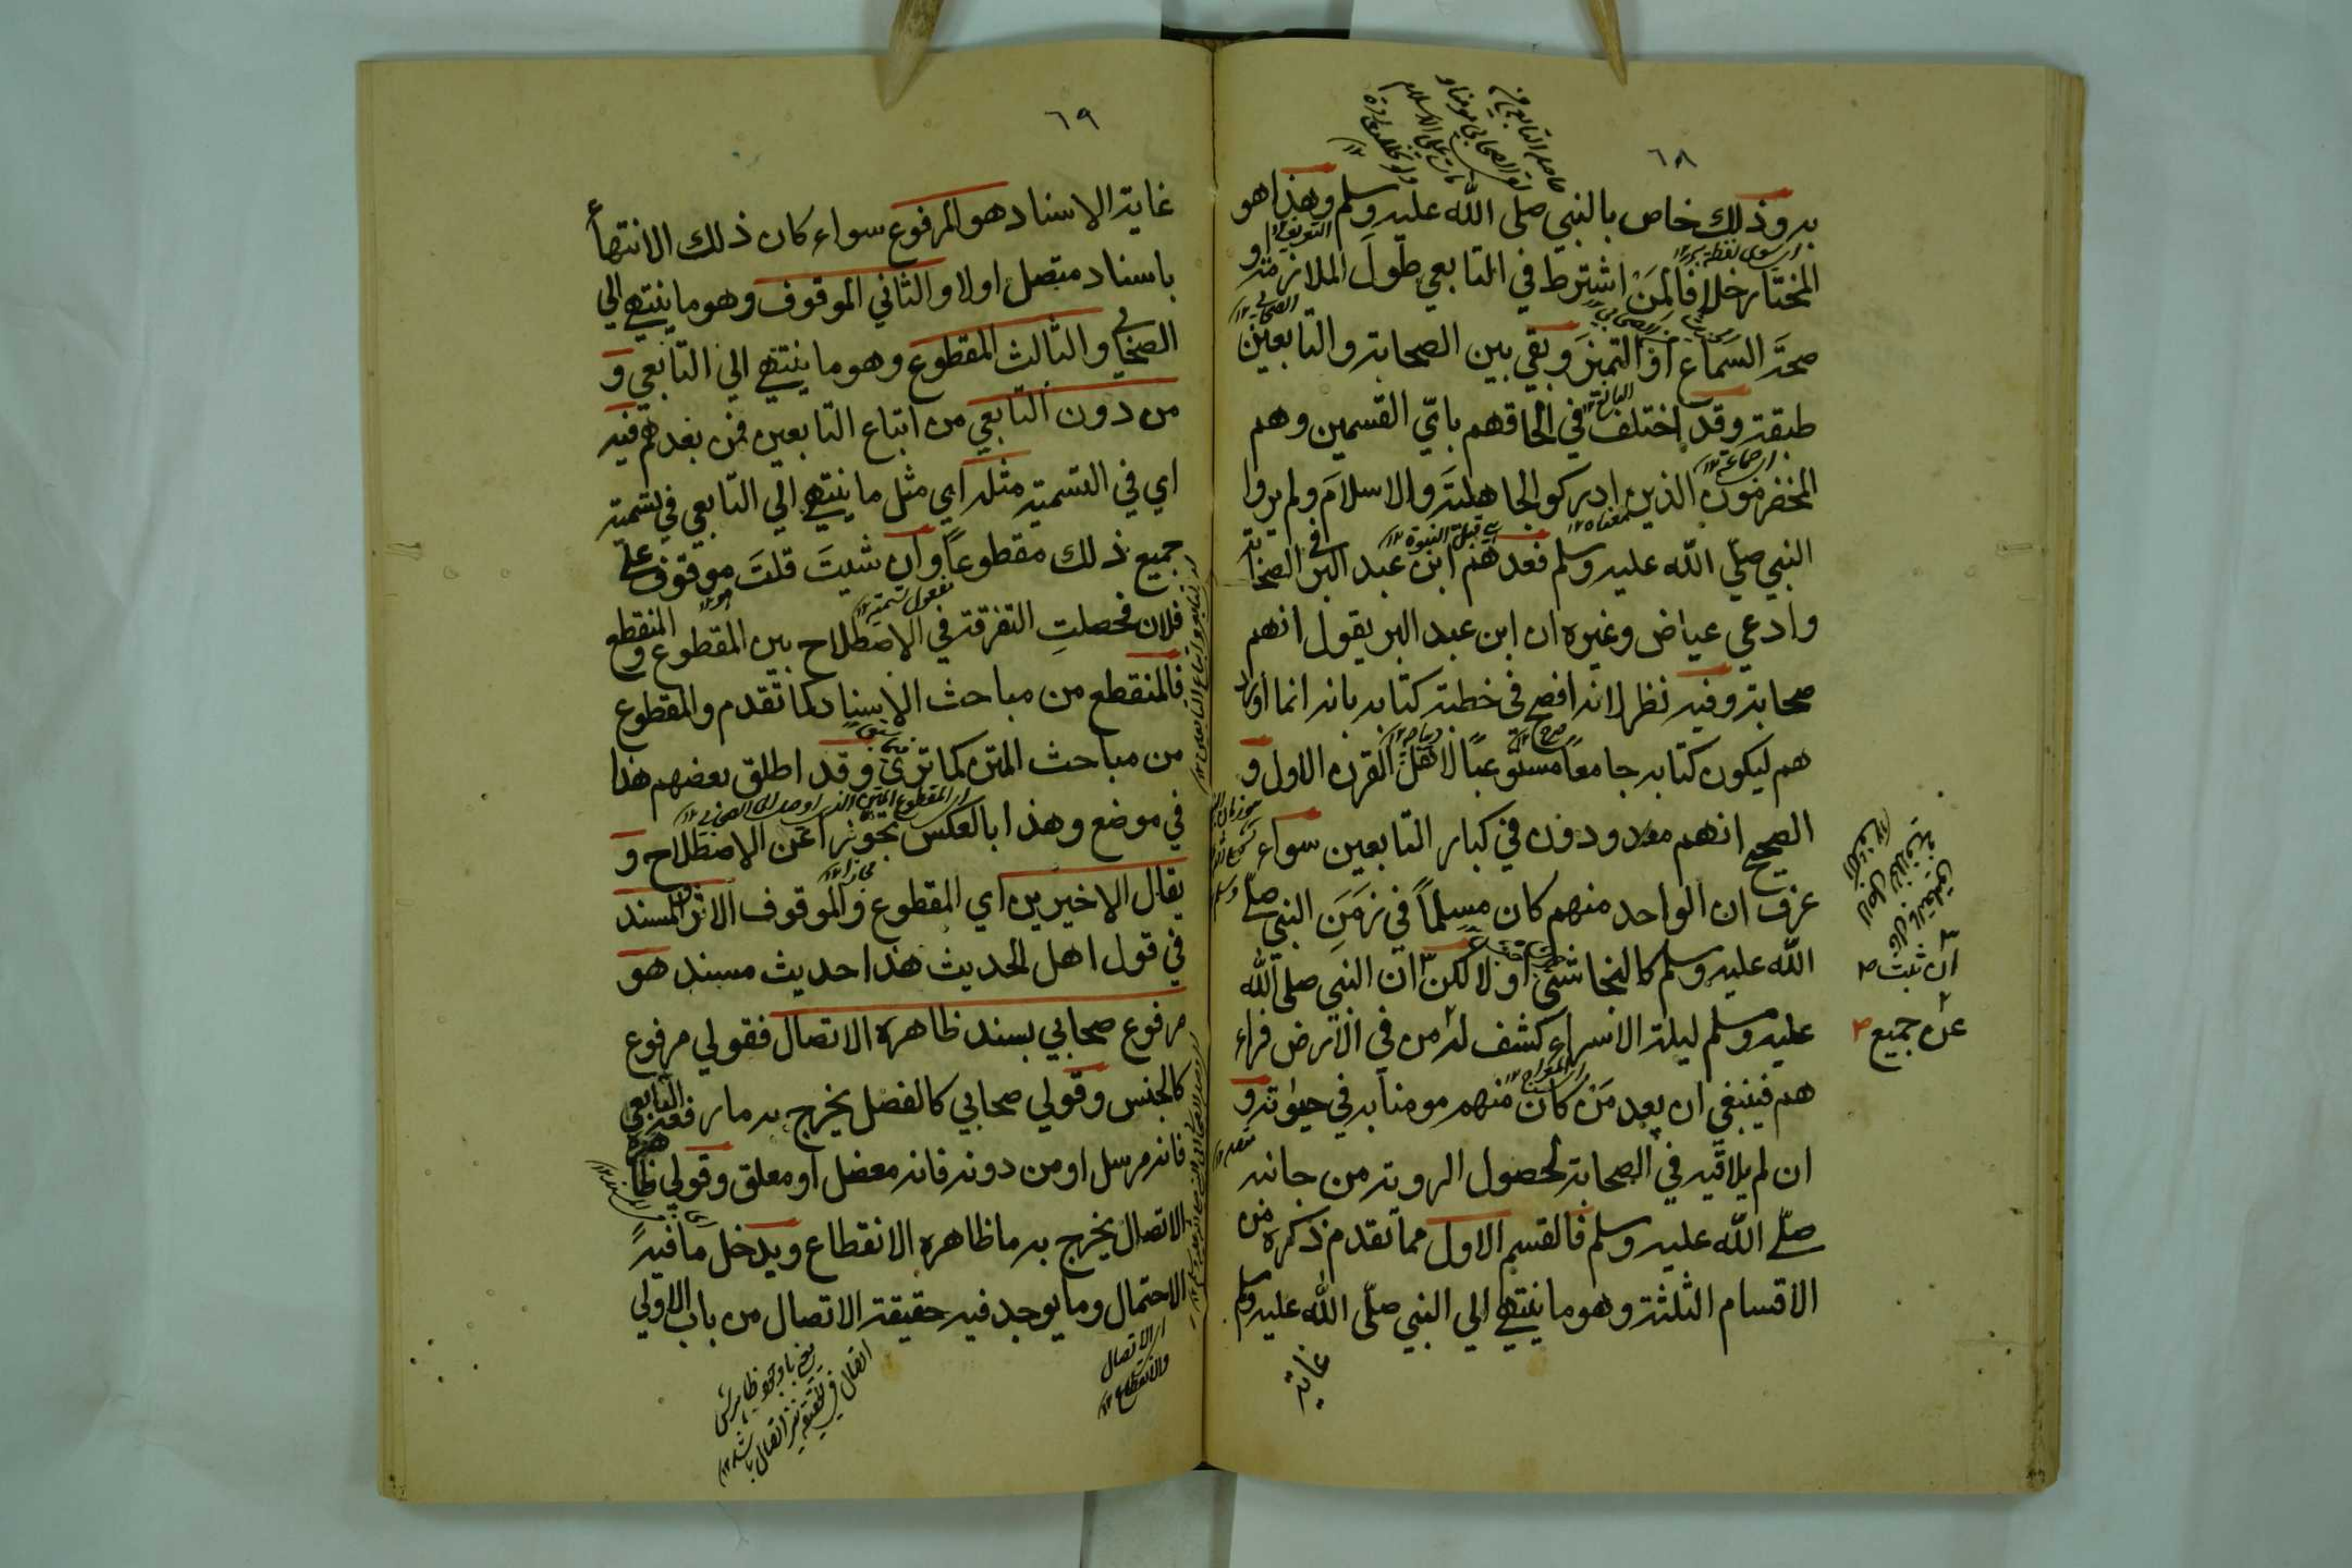 ٦٨
به وذلك خاص بالنبي صلى الله عليه وسلم وهذا هو
المختار خلافا لمن اشترط في التابعي طول الملازمة و
صحة السماع او التميز وبقي بين الصحابة والتابعين
طبقة وقد اختلف في الحاقهم باي القسمين وهم
المخضرمون الذين ادركوا الجاهلية والاسلام ولم يروا
النبي صلي الله عليه وسلم فعدهم ابن عبد البر في الصحابة
وادعي عياض وغيره ان ابن عبد البر يقول انهم
صحابة وفيه نظر لانه افصح في خطبة كتابه بانه انما اورد
هم ليكون كتابه جامعا مستوعبا لاهل القرن الاول و
الصحيح انهم معدودون في كبار التابعين سواء
عرف ان الواحد منهم كان مسلماً في زمن النبي صلى
الله عليه وسلم كالنجاشي او لا لكن ان النبي صلى الله
عليه وسلم ليلة الاسراء كشف له من في الارض فراء
هم فينبغي ان يعد من كان منهم مومنا به في حيوته و
ان لم يلاقيه في الصحابة لحصول الروية من جانبه
صلي الله عليه وسلم فالقسم الاول مما تقدم ذكره من
الاقسام الثلثة وهو ما ينتهي الي النبي صلى الله عليه وسلم
غاية
ان ثبت
عن جميع
٦٩
غاية الاسناد هو المرفوع سواء كان ذلك الانتهاء
باسناد متصل اولا والثاني الموقوف وهو ما ينتهي الي
الصحابي والثالث المقطوع وهو ما ينتهي الي التابعي و
من دون التابعي من اتباع التابعين فمن بعدهم فيه
اي في التسمية مثله اي مثل ما ينتهي الي التابعي في تسمية
جميع ذلك مقطوعاً وان شيت قلت موقوف علي
فلان فحصلت التفرقة في الاصطلاح بين المقطوع والمنقطع
فالمنقطع من مباحث الاسناد كما تقدم والمقطوع
من مباحث المتن كما تري وقد اطلق بعضهم هذا
في موضع وهذا بالعكس تجوزا عن الاصطلاح و
يقال الاخيرين اي المقطوع والموقوف الاثر والمسند
في قول اهل الحديث هذا حديث مسند هو
مرفوع صحابي بسند ظاهره الاتصال فقولي مرفوع
كالجنس وقولي صحابي كالفصل يخرج به ما رفعه التابعي
فانه مرسل او من دونه فانه معضل او معلق وقولي ظاهره
الاتصال يخرج به ما ظاهره الانقطاع ويدخل ما فيه
الاحتمال وما يوجد فيه حقيقة الاتصال من باب الاولي
الاتصال
والانقطاع ١٢